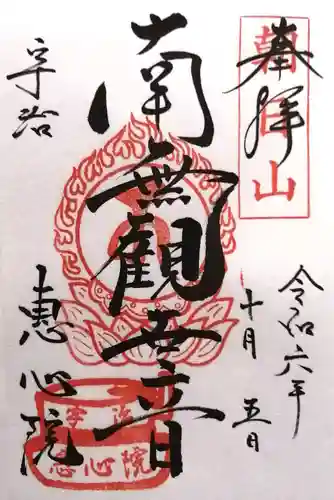 奉拝
朝日山
令和六年
十月五日
南無観世音
宇治
恵心院
宇治
恵心院